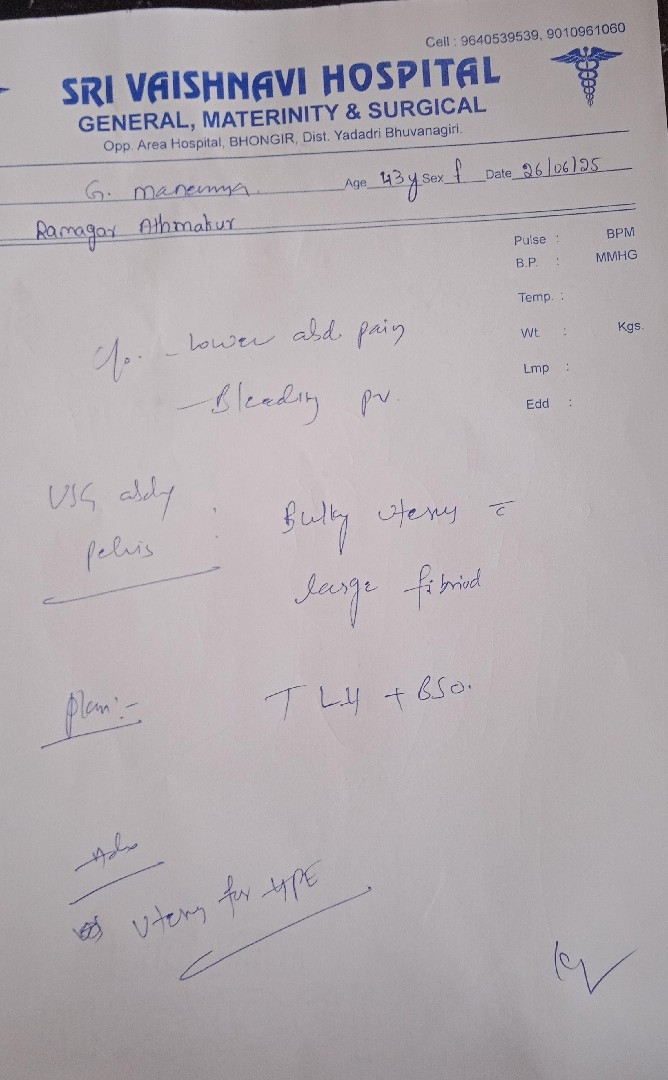 Cell : 9640539539, 9010961060
SRI VAISHNAVI HOSPITAL
GENERAL, MATERINITY & SURGICAL
Opp. Area Hospital, BHONGIR, Dist. Yadadri Bhuvanagiri.
G. Age 43y Sex f Date 26/06/25
Ramagar Athmakur
Pulse : BPM
B.P. : MMHG
Temp. :
Wt : Kgs.
Lmp :
Edd :
c/o. - Lower abd. pain
- Bleeding pv.
USG abdy : Bulky uterus c̄
pelvis large fibriod
Plan:- TLH + BSO.
Adv
Uterus for HPE